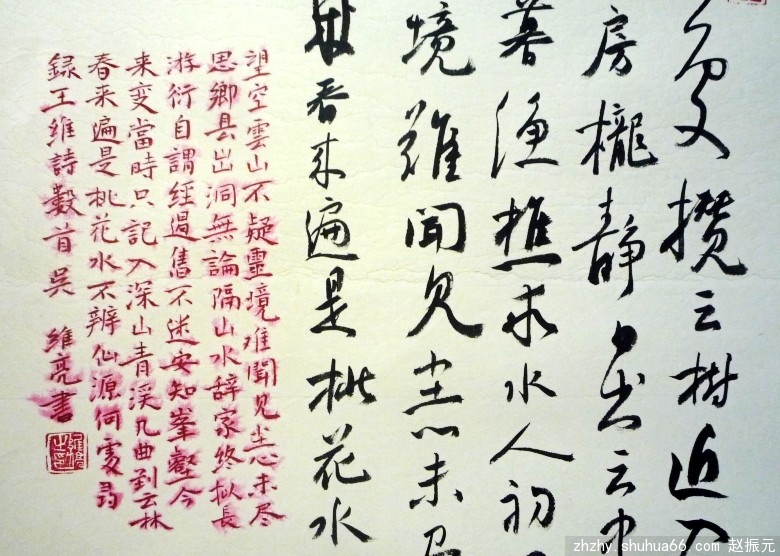 处攒云树近入
房櫳静日出云中
暮渔樵乘水入初
境難聞見尘心未
春来遍是桃花水
望空雲山不疑靈境难聞見尘心未尽
思鄉县出洞無論隔山水辞家终拟長
游衍自謂經過舊不迷安知峯壑今
来变當時只記入深山青溪几曲到云林
春来遍是桃花水不辨仙源何處尋
録王維詩數首吳 維亮書
zhzhy.shuhua66.com 赵振元